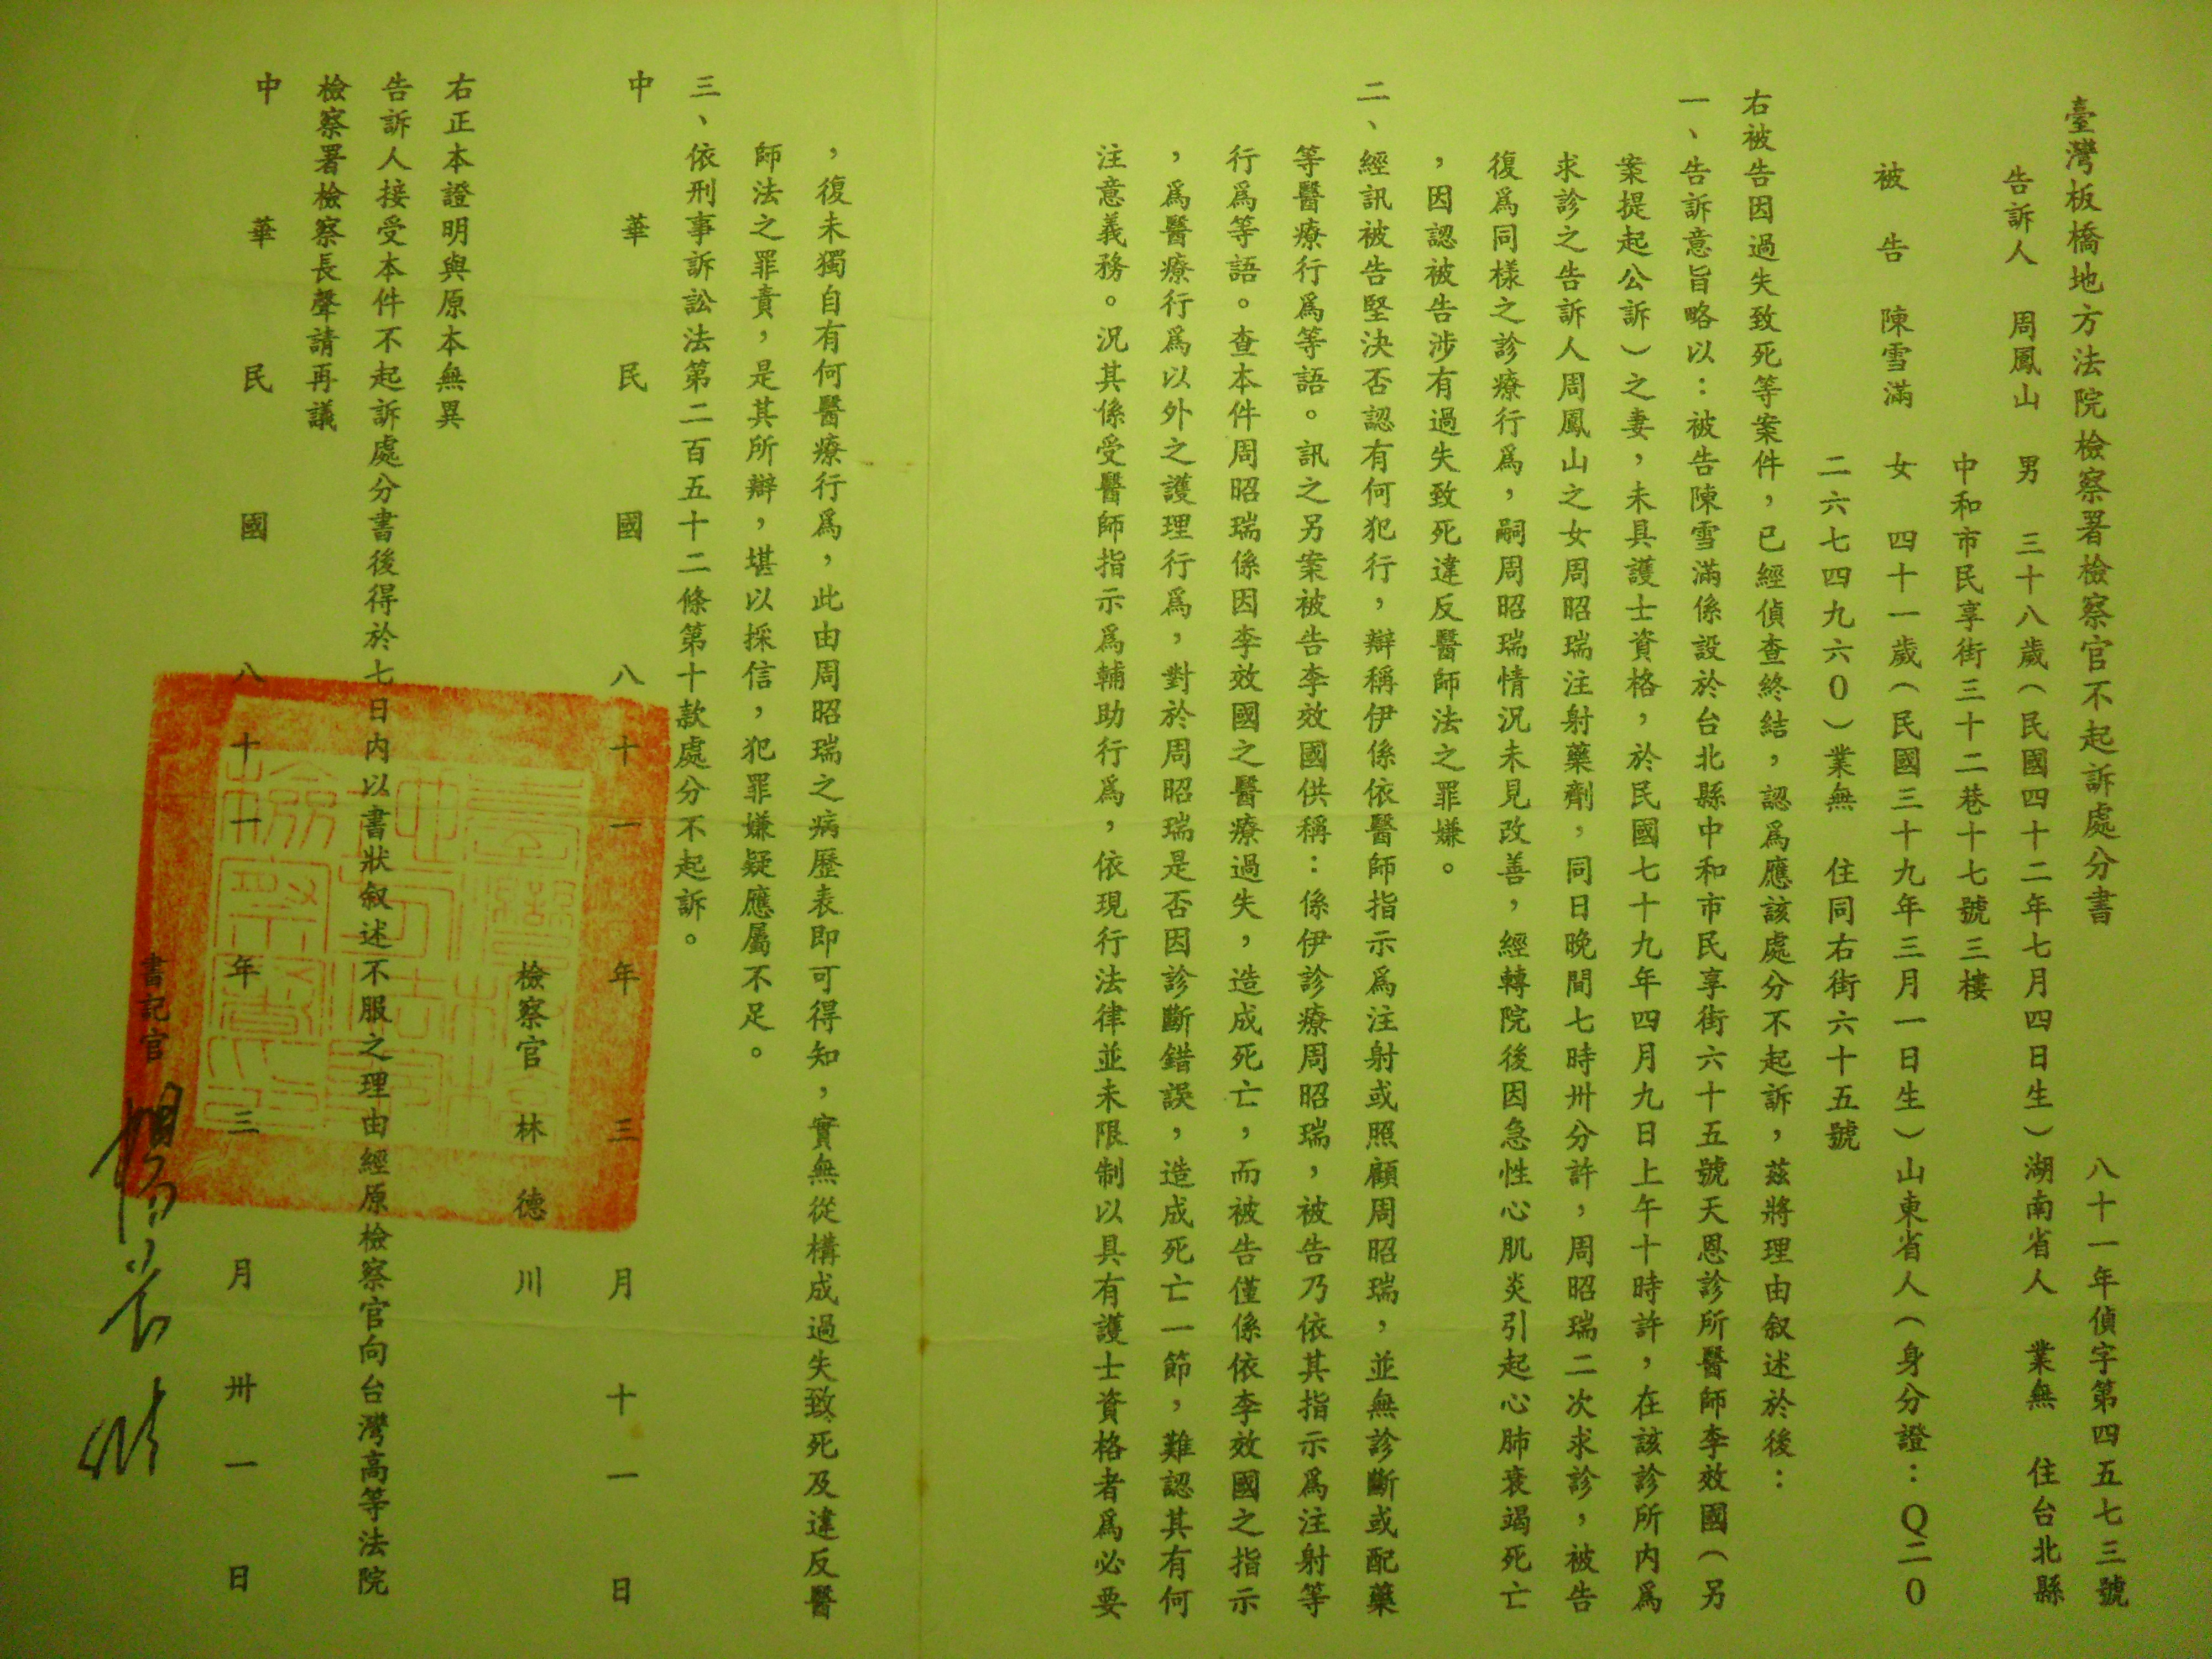 臺灣板橋地方法院檢察署檢察官不起訴處分書
八十一年偵字第四五七三號
告訴人 周鳳山 男 三十八歲（民國四十二年七月四日生）湖南省人 業無 住台北縣
中和市民享街三十二巷十七號三樓
被告 陳雪滿 女 四十一歲（民國三十九年三月一日生）山東省人（身分證：Q二０
二六七四九六０）業無 住同右街六十五號
右被告因過失致死等案件，已經偵查終結，認為應該處分不起訴，茲將理由叙述於後：
一、告訴意旨略以：被告陳雪滿係設於台北縣中和市民享街六十五號天恩診所醫師李效國（另
案提起公訴）之妻，未具護士資格，於民國七十九年四月九日上午十時許，在該診所內爲
求診之告訴人周鳳山之女周昭瑞注射藥劑，同日晚間七時卅分許，周昭瑞二次求診，被告
復爲同樣之診療行爲，嗣周昭瑞情況未見改善，經轉院後因急性心肌炎引起心肺衰竭死亡
，因認被告涉有過失致死違反醫師法之罪嫌。
二、經訊被告堅決否認有何犯行，辯稱伊係依醫師指示爲注射或照顧周昭瑞，並無診斷或配藥
等醫療行爲等語。訊之另案被告李效國供稱：係伊診療周昭瑞，被告乃依其指示爲注射等
行爲等語。查本件周昭瑞係因李效國之醫療過失，造成死亡，而被告僅係依李效國之指示
，爲醫療行爲以外之護理行爲，對於周昭瑞是否因診斷錯誤，造成死亡一節，難認其有何
注意義務。況其係受醫師指示爲輔助行爲，依現行法律並未限制以具有護士資格者爲必要
，復未獨自有何醫療行爲，此由周昭瑞之病歷表即可得知，實無從構成過失致死及違反醫
師法之罪責，是其所辯，堪以採信，犯罪嫌疑應屬不足。
三、依刑事訴訟法第二百五十二條第十款處分不起訴。
中華民國八十一年三月十一日
檢察官 林德川
右正本證明與原本無異
告訴人接受本件不起訴處分書後得於七日內以書狀叙述不服之理由經原檢察官向台灣高等法院
檢察署檢察長聲請再議
中華民國八十一年三月卅一日
書記官